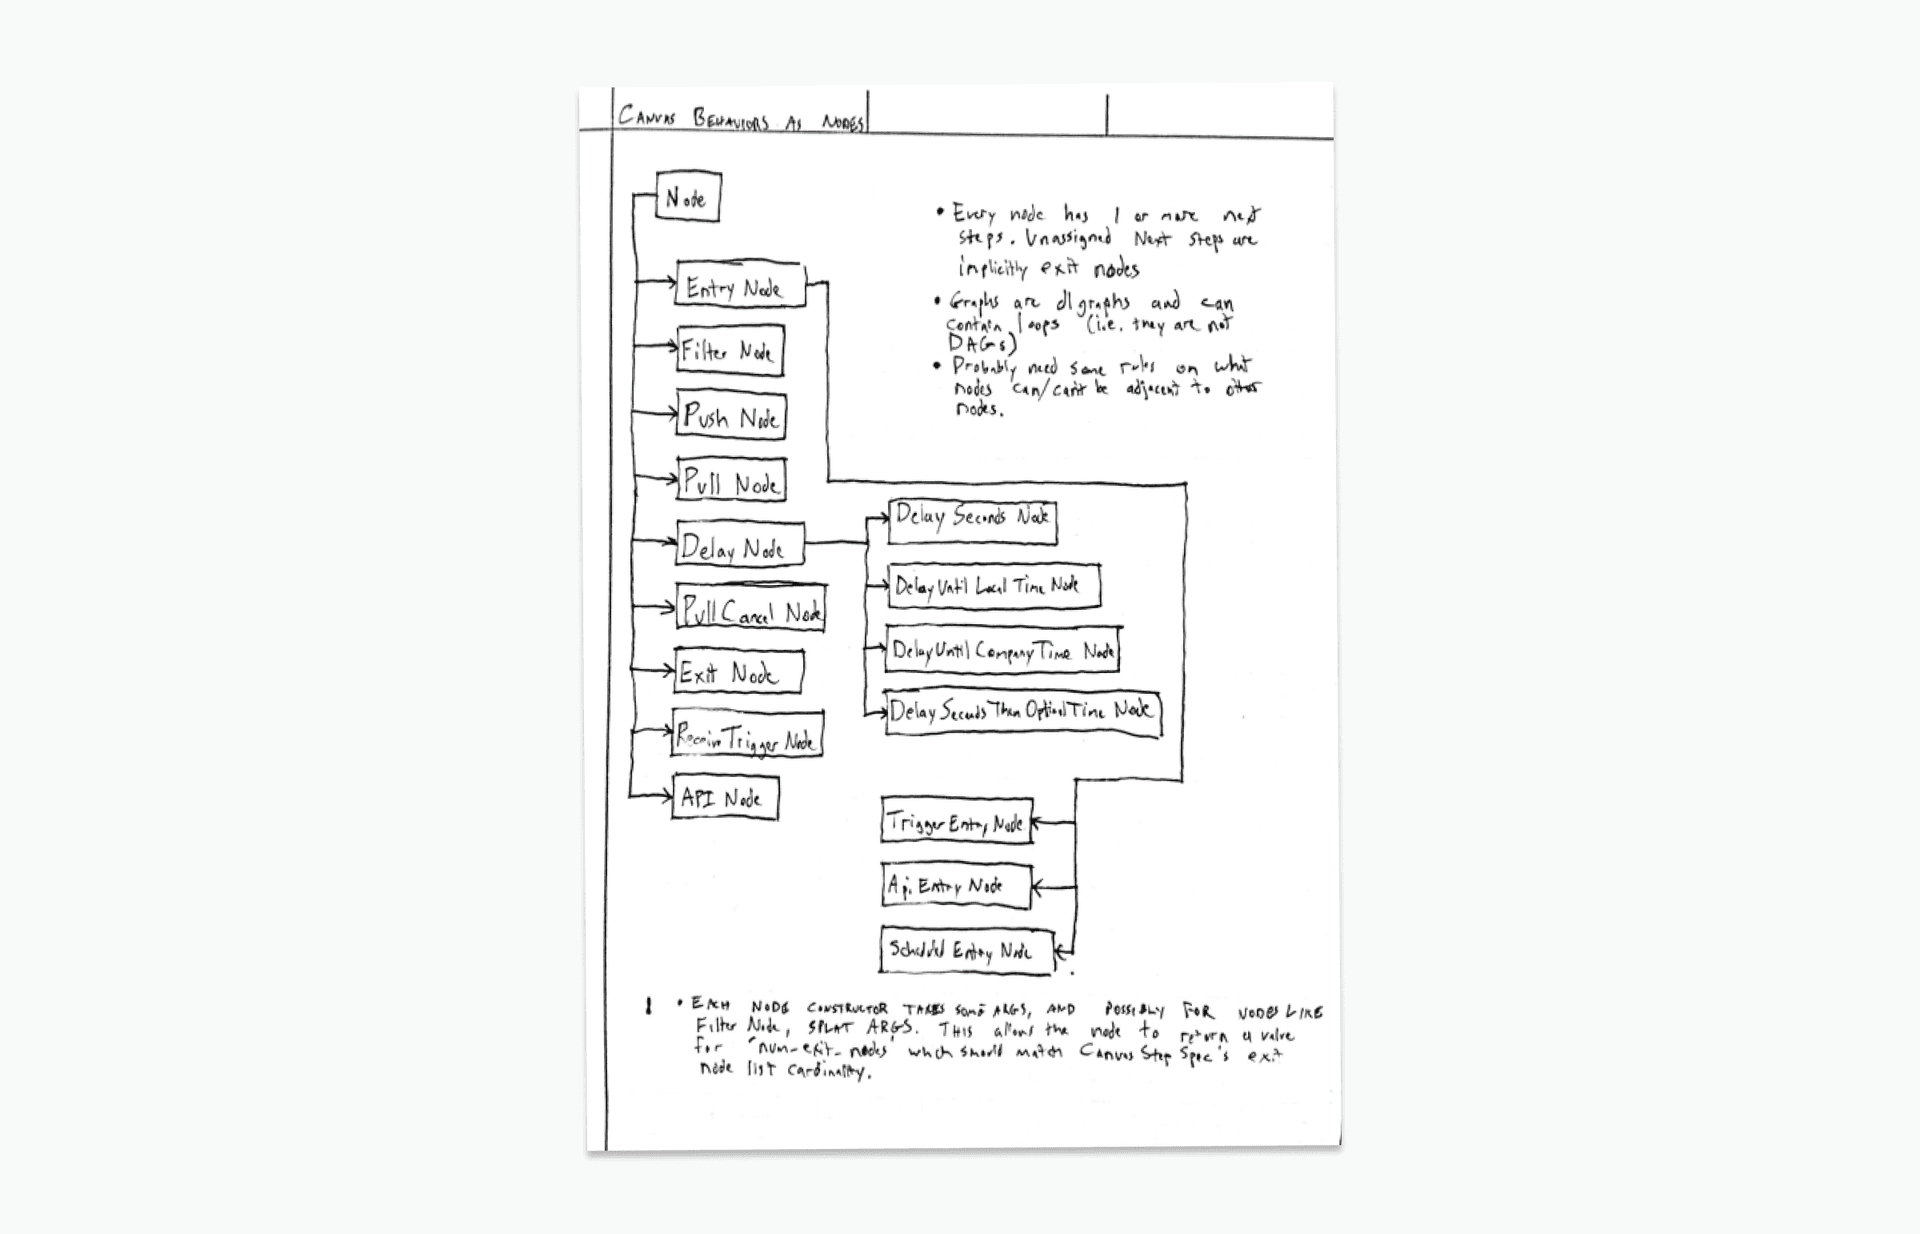 CANVAS BEHAVIORS AS NODES
Node
Entry Node
Filter Node
Push Node
Pull Node
Delay Node
Pull Cancel Node
Exit Node
Receive Trigger Node
API Node
• Every node has 1 or more next
steps. Unassigned Next steps are
implicitly exit nodes
• Graphs are digraphs and can
contain loops (i.e. they are not
DAGs)
• Probably need some rules on what
nodes can/can't be adjacent to other
nodes.
Delay Seconds Node
Delay Until Local Time Node
Delay Until Company Time Node
Delay Seconds Then Optional Time Node
Trigger Entry Node
Api Entry Node
Scheduled Entry Node
1 • EACH NODE CONSTRUCTOR TAKES SOME ARGS, AND POSSIBLY FOR NODES LIKE
Filter Node, SPLAT ARGS. THIS allows the node to return a value
for 'num-exit-nodes' which should match Canvas Step Spec's exit
node list cardinality.